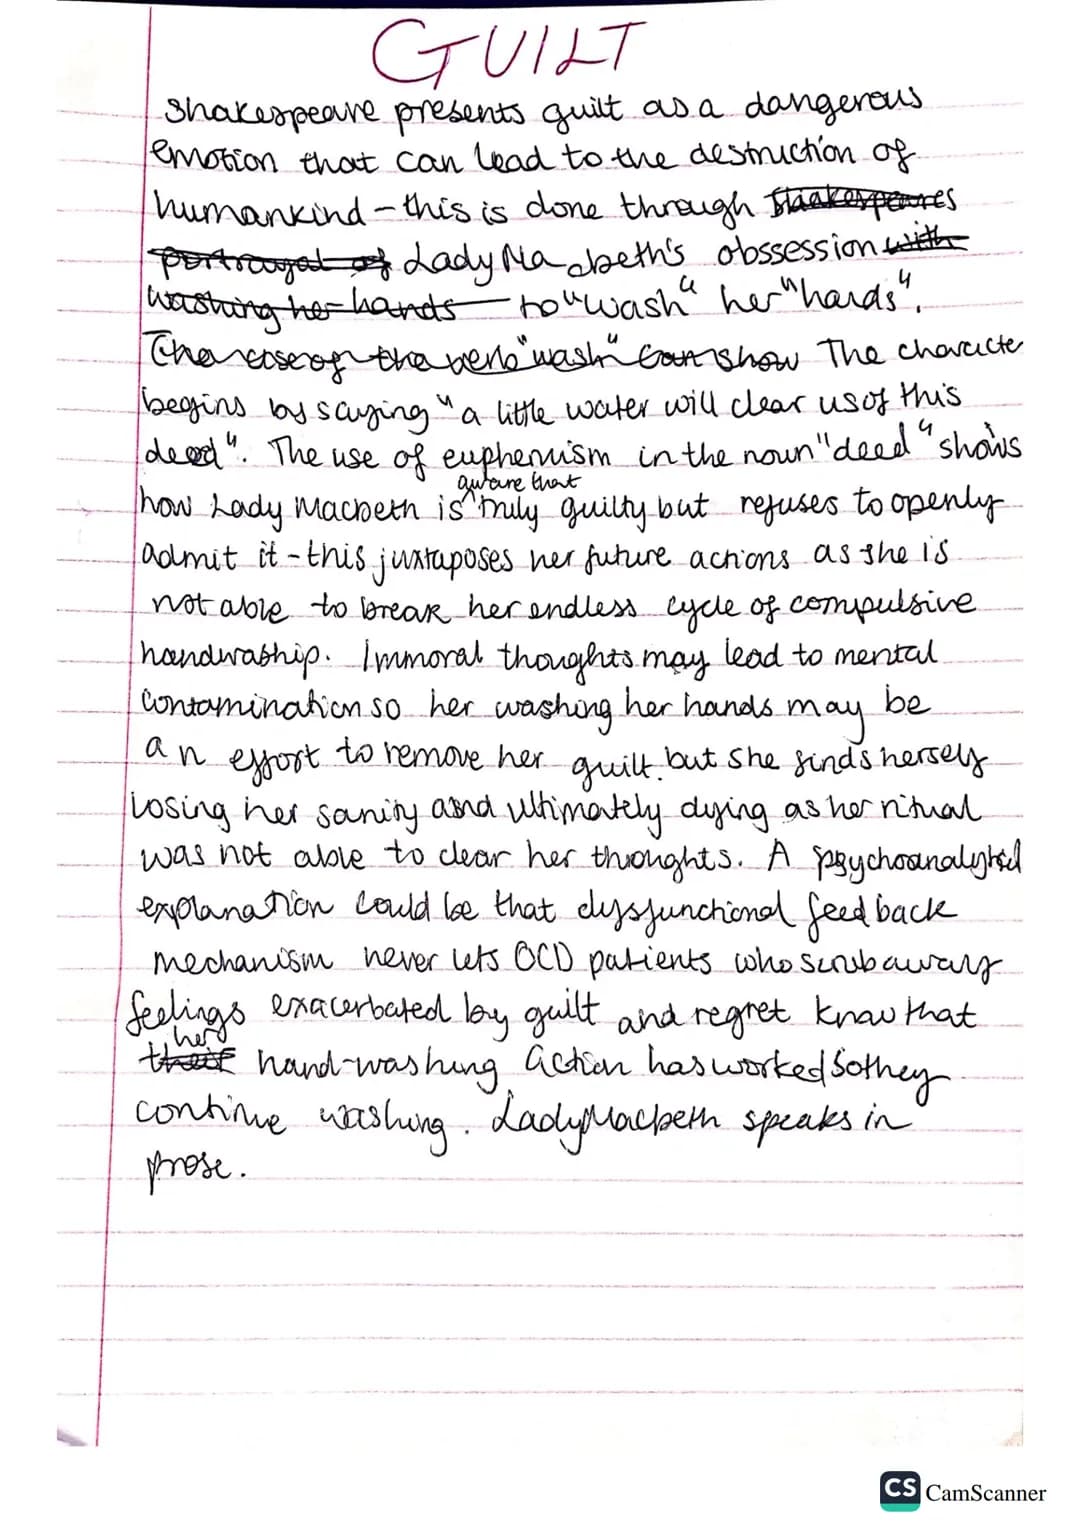 GUILT
Shakespeare presents guilt as a dangerous
emotion that can lead to the destruction of
humankind - this is done through Shakespeares
portrayal of Lady Macbeth's obssession with
washing her hands to "wash" her "hands".
The use of the verb "wash" can show The character
begins by saying "a little water will clear us of this
deed". The use of euphemism in the noun "deed" shows
aware that
how Lady Macbeth is truly guilty but refuses to openly
admit it - this juxtaposes her future actions as she is
not able to break her endless cycle of compulsive
handwaship. Immoral thoughts may lead to mental
contamination so her washing her hands may be
an effort to remove her guilt. but she finds herself
losing her sanity and ultimately dying as her ritual
was not able to clear her thoughts. A
explanation could be that dysfunctional feedback
mechanism never lets OCD patients who scrub away
feelings exacerbated by guilt and regret know that
her
their hand-washing action has worked so they
continue washing. Lady Macbeth speaks in
prose.
CS CamScanner